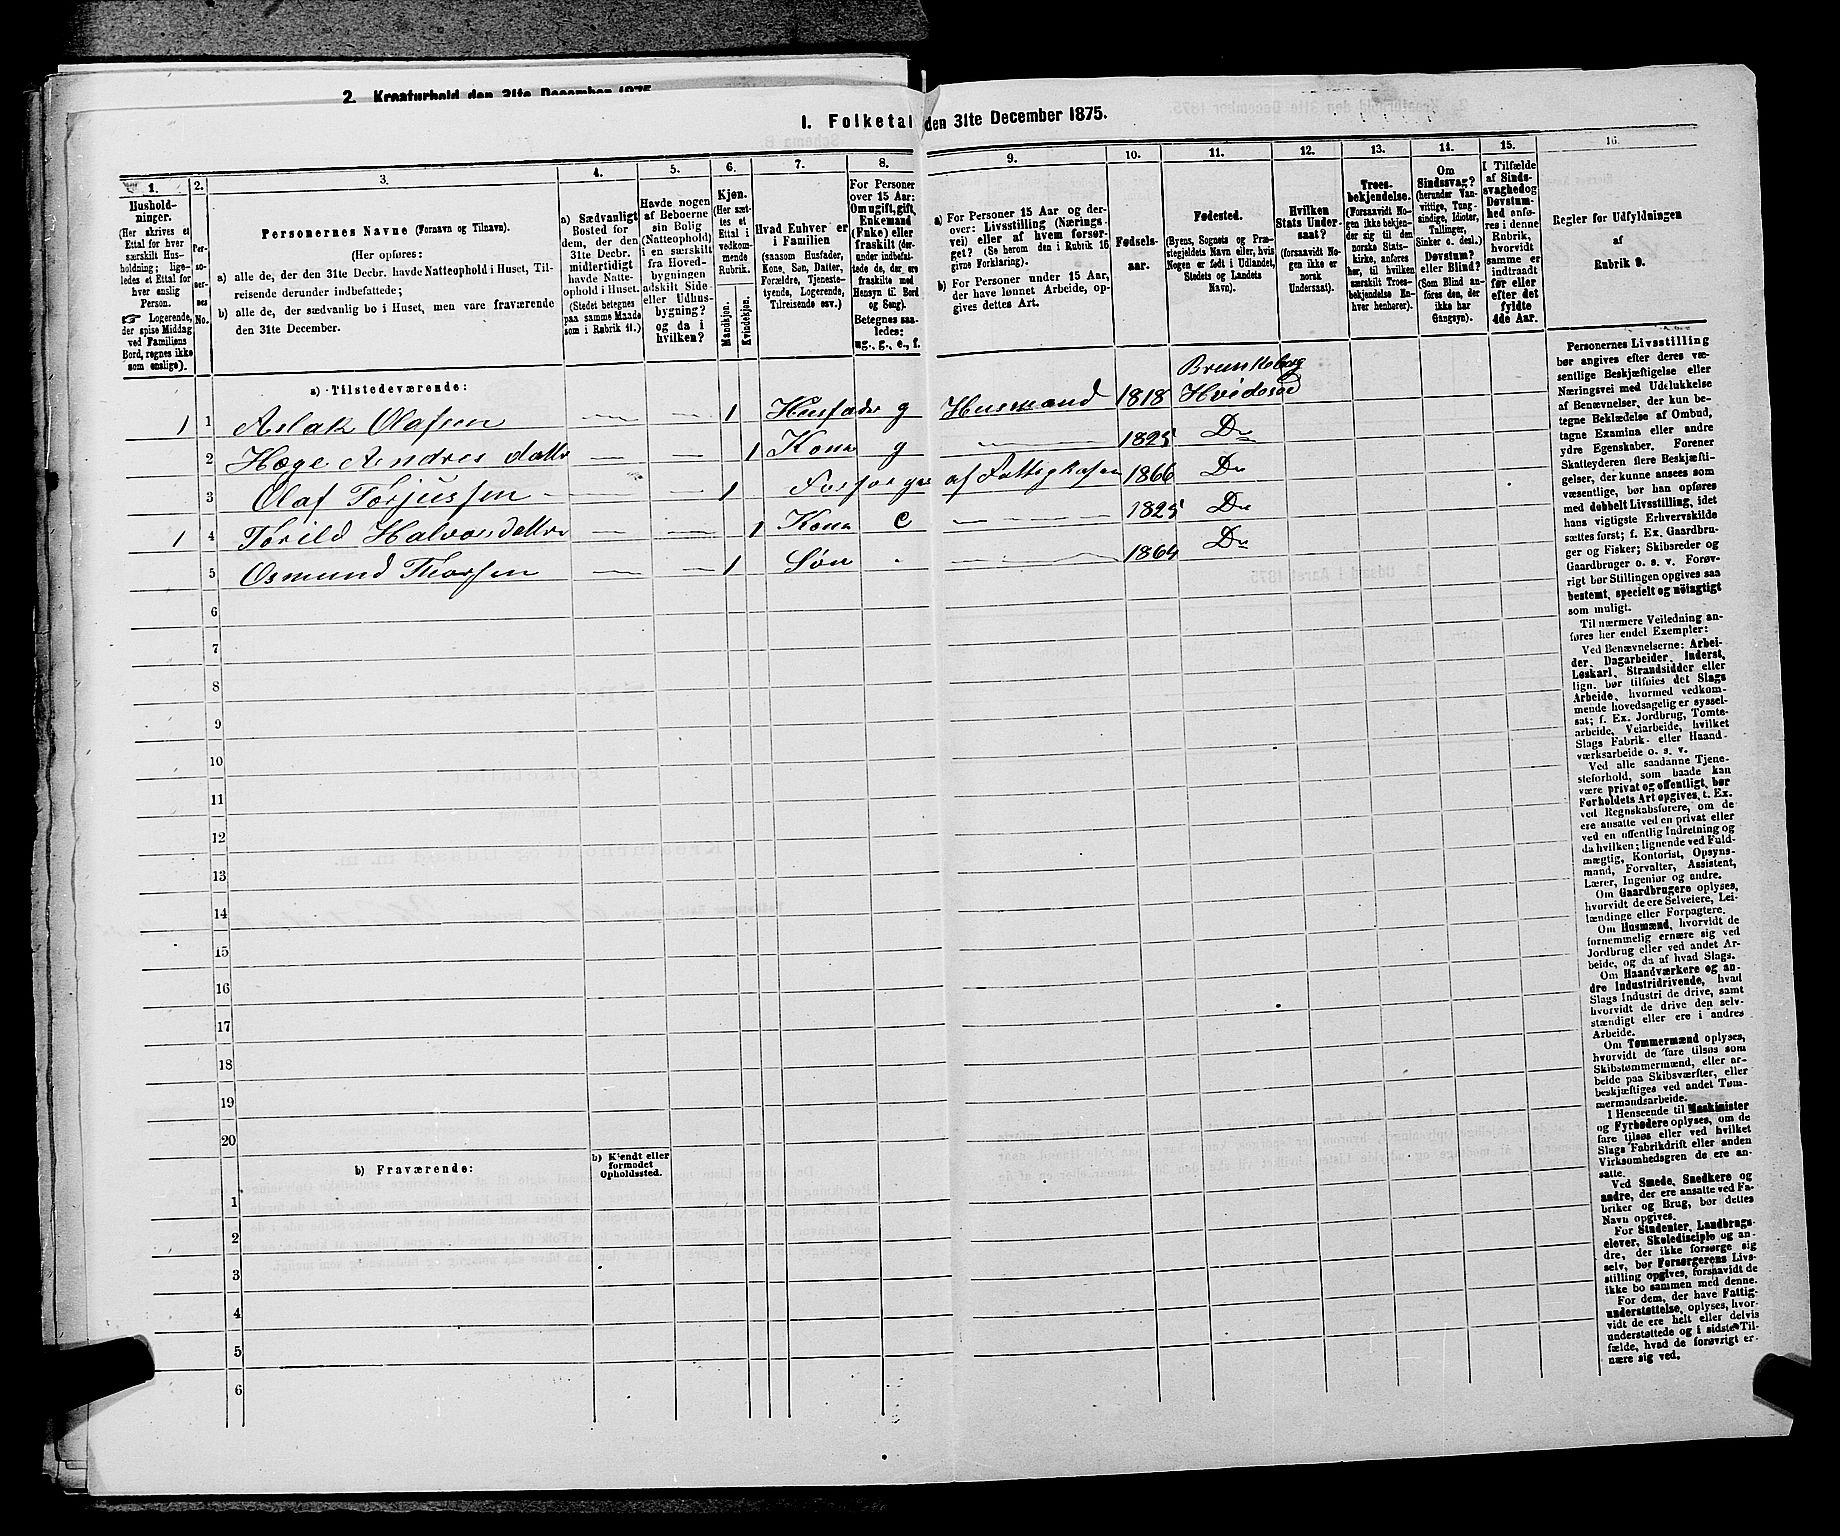 2. Kreaturhold den 31te December 1875.
1. Folketal den 31te December 1875.
1.
Hushold-
ninger.
(Her skrives et
Ettal for hver
særskilt Hus-
holdning; lige-
ledes et Ettal for
hver enslig
Person.
☞ Logerende,
der spise Middag
ved Familiens
Bord, regnes ikke
som enslige).
2.
Per-
so-
ner-
nes
No.
3.
Personernes Navne (Fornavn og Tilnavn).
(Her opføres:
a) alle de, der den 31te Decbr. havde Natteophold i Huset, Til-
reisende derunder indbefattede;
b) alle de, der sædvanlig bo i Huset, men vare fraværende
den 31te December.
4.
a) Sædvanligt
Bosted for
dem, der den
31te Decbr.
midlertidigt
havde Natte-
ophold i Huset.
(Stedet betegnes
paa samme Maade
som i Rubrik 11.)
5.
Havde nogen
af Beboerne
sin Bolig
(Natteophold)
i en særskilt
fra Hoved-
bygningen
adskilt Side-
eller Udhus-
bygning?
og da i
hvilken?
6.
Kjøn.
(Her sæt-
tes et
Ettal i
vedkom-
mende
Rubrik.
Mandkjøn.
Kvindekjøn.
7.
Hvad Enhver er
i Familien
(saasom Husfader,
Kone, Søn, Datter,
Forældre, Tjeneste-
tyende, Logerende,
Tilreisende osv.)
8.
For Personer
over 15 Aar:
Om ugift, gift,
Enkemand
(Enke) eller
fraskilt (der-
under indbefat-
tede de, der ere
fraskilte med
Hensyn til Bord
og Seng).
Betegnes saa-
ledes:
ug., g., e., f.
9.
a) For Personer 15 Aar og der-
over: Livsstilling (Nærings-
vei) eller af hvem forsør-
get? (Se herom den i Rubrik 16
givne Forklaring).
b) For Personer under 15 Aar,
der have lønnet Arbeide, op-
gives dettes Art.
10.
Fødsels-
aar.
11.
Fødested.
(Byens, Sognets og Præ-
stegjeldets Navn eller, hvis
Nogen er født i Udlandet,
Stedets og Landets
Navn).
12.
Hvilken
Stats Under-
saat?
(forsaavidt No-
gen ikke er
norsk
Undersaat).
13.
Troes-
bekjendelse.
(Forsaavidt No-
gen ikke bekjen-
der sig til den
norske Stats-
kirke, anføres
her, til hvilken
særskilt Troes-
bekjendelse En-
hver henhører).
14.
Om
Sindssvag?
(herunder Van-
vittige, Tung-
sindige, Idioter,
Tullinger,
Sinker o. desl.)
Døvstum?
eller Blind?
(Som Blind an-
føres den, der
ikke har
Gangsyn).
15.
I Tilfælde
af Sinds-
svaghed og
Døvstum-
hed anfø-
res i denne
Rubrik,
hvorvidt
samme er
indtraadt
før eller
efter det
fyldte
4de Aar.
16.
Regler for Udfyldningen
af
Rubrik 9.
a) Tilstedeværende:
Brunkeberg
1 1 Aslak Olafsen — — 1 Husfader g Husmand 1818 Hvideseid
2 Hæge Andres datter — — 1 Kone g — 1825 Do
3 Olaf Torjussen — — 1 Forsørges af Fattigkassen 1866 Do
1 4 Torild Halvorsdatter — — 1 Kone e — 1825 Do
5 Osmund Thorsen — — 1 Søn — 1864 Do
6
7
8
9
10
11
12
13
14
15
16
17
18
19
20
b) Fraværende:
b) Kjendt eller
formodet
Opholdssted.
1
2
3
4
5
6
Personernes Livsstilling
bør angives efter deres væ-
sentlige Beskjæftigelse eller
Næringsvei med Udelukkelse
af Benævnelser, der kun be-
tegne Beklædelse af Ombud,
tagne Examina eller andre
ydre Egenskaber. Forener
Skatteyderen flere Beskjæfti-
gelser, der kunne ansees som
væsentlige, bør han opføres
med dobbelt Livsstilling, idet
hans vigtigste Erhvervskilde
sættes først; f. Ex. Gaardbru-
ger og Fisker; Skibsreder og
Gaardbruger o. s. v. Forøv-
rigt bør Stillingen opgives saa
bestemt, specielt og nöiagtigt
som muligt.
Til nærmere Veiledning an-
føres her endel Exempler:
Ved Benævnelserne: Arbei-
der, Dagarbeider, Inderst,
Løskarl, Strandsidder eller
lign. bør tilføies det Slags
Arbeide, hvormed vedkom-
mende hovedsagelig er syssel-
sat; f. Ex. Jordbrug, Tomte-
arbeide, Veiarbeide, hvilket
Slags Fabrik- eller Haand-
værksarbeide o. s. v.
Ved alle saadanne Tjene-
steforhold, som baade kan
være privat og offentligt, bør
Forholdets Art opgives, t. Ex.
ved Regnskabsførere, om de
ere ansatte ved en privat eller
ved en offentlig Indretning og
da hvilken; lignende ved Fuld-
mægtig, Kontorist, Opsyns-
mand, Forvalter, Assistent,
Lærer, Ingeniør og andre.
Om Gaardbrugere oplyses,
hvorvidt de ere Selveiere, Lei-
lændinge eller Forpagtere.
Om Husmænd, hvorvidt de
fornemmelig ernære sig ved
Jordbrug eller ved andet Ar-
beide, og da af hvad Slags.
Om Haandværkere og an-
dre Industridrivende, hvad
Slags Industri de drive, samt
hvorvidt de drive den selv-
stændigt eller ere i andres
Arbeide.
Om Tømmermænd oplyses,
hvorvidt de fare tilsøs som
Skibstømmermænd, eller ar-
beide paa Skibsværfter, eller
beskjæftiges ved andet Tøm-
mermandsarbeide.
I Henseende til Maskinister
og Fyrbødere oplyses, om de
fare tilsøs eller ved hvilket
Slags Fabrikdrift eller anden
Virksomhedsgren de ere an-
satte.
Ved Smede, Snedkere og
andre, der ere ansatte ved Fa-
briker og Brug, bør dettes
Navn opgives.
For Studenter, Landbrugs-
elever, Skoledisciple og an-
dre, der ikke forsørge sig
selv, bør Forsørgerens Livs-
stilling opgives, forsaavidt de
ikke bo sammen med denne.
For dem, der have Fattig-
understøttelse, oplyses, hvor-
vidt de ere helt eller delvis
understøttede og i sidste Til-
fælde, hvad de forøvrigt er-
nære sig ved.